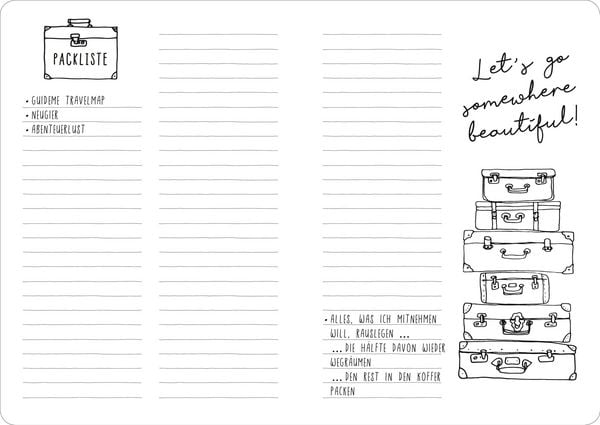 PACKLISTE
• GUIDEME TRAVELMAP
• NEUGIER
• ABENTEUERLUST
• ALLES, WAS ICH MITNEHMEN
WILL, RAUSLEGEN ...
...DIE HÄLFTE DAVON WIEDER
WEGRÄUMEN
...DEN REST IN DEN KOFFER
PACKEN
Let's go
somewhere
beautiful!